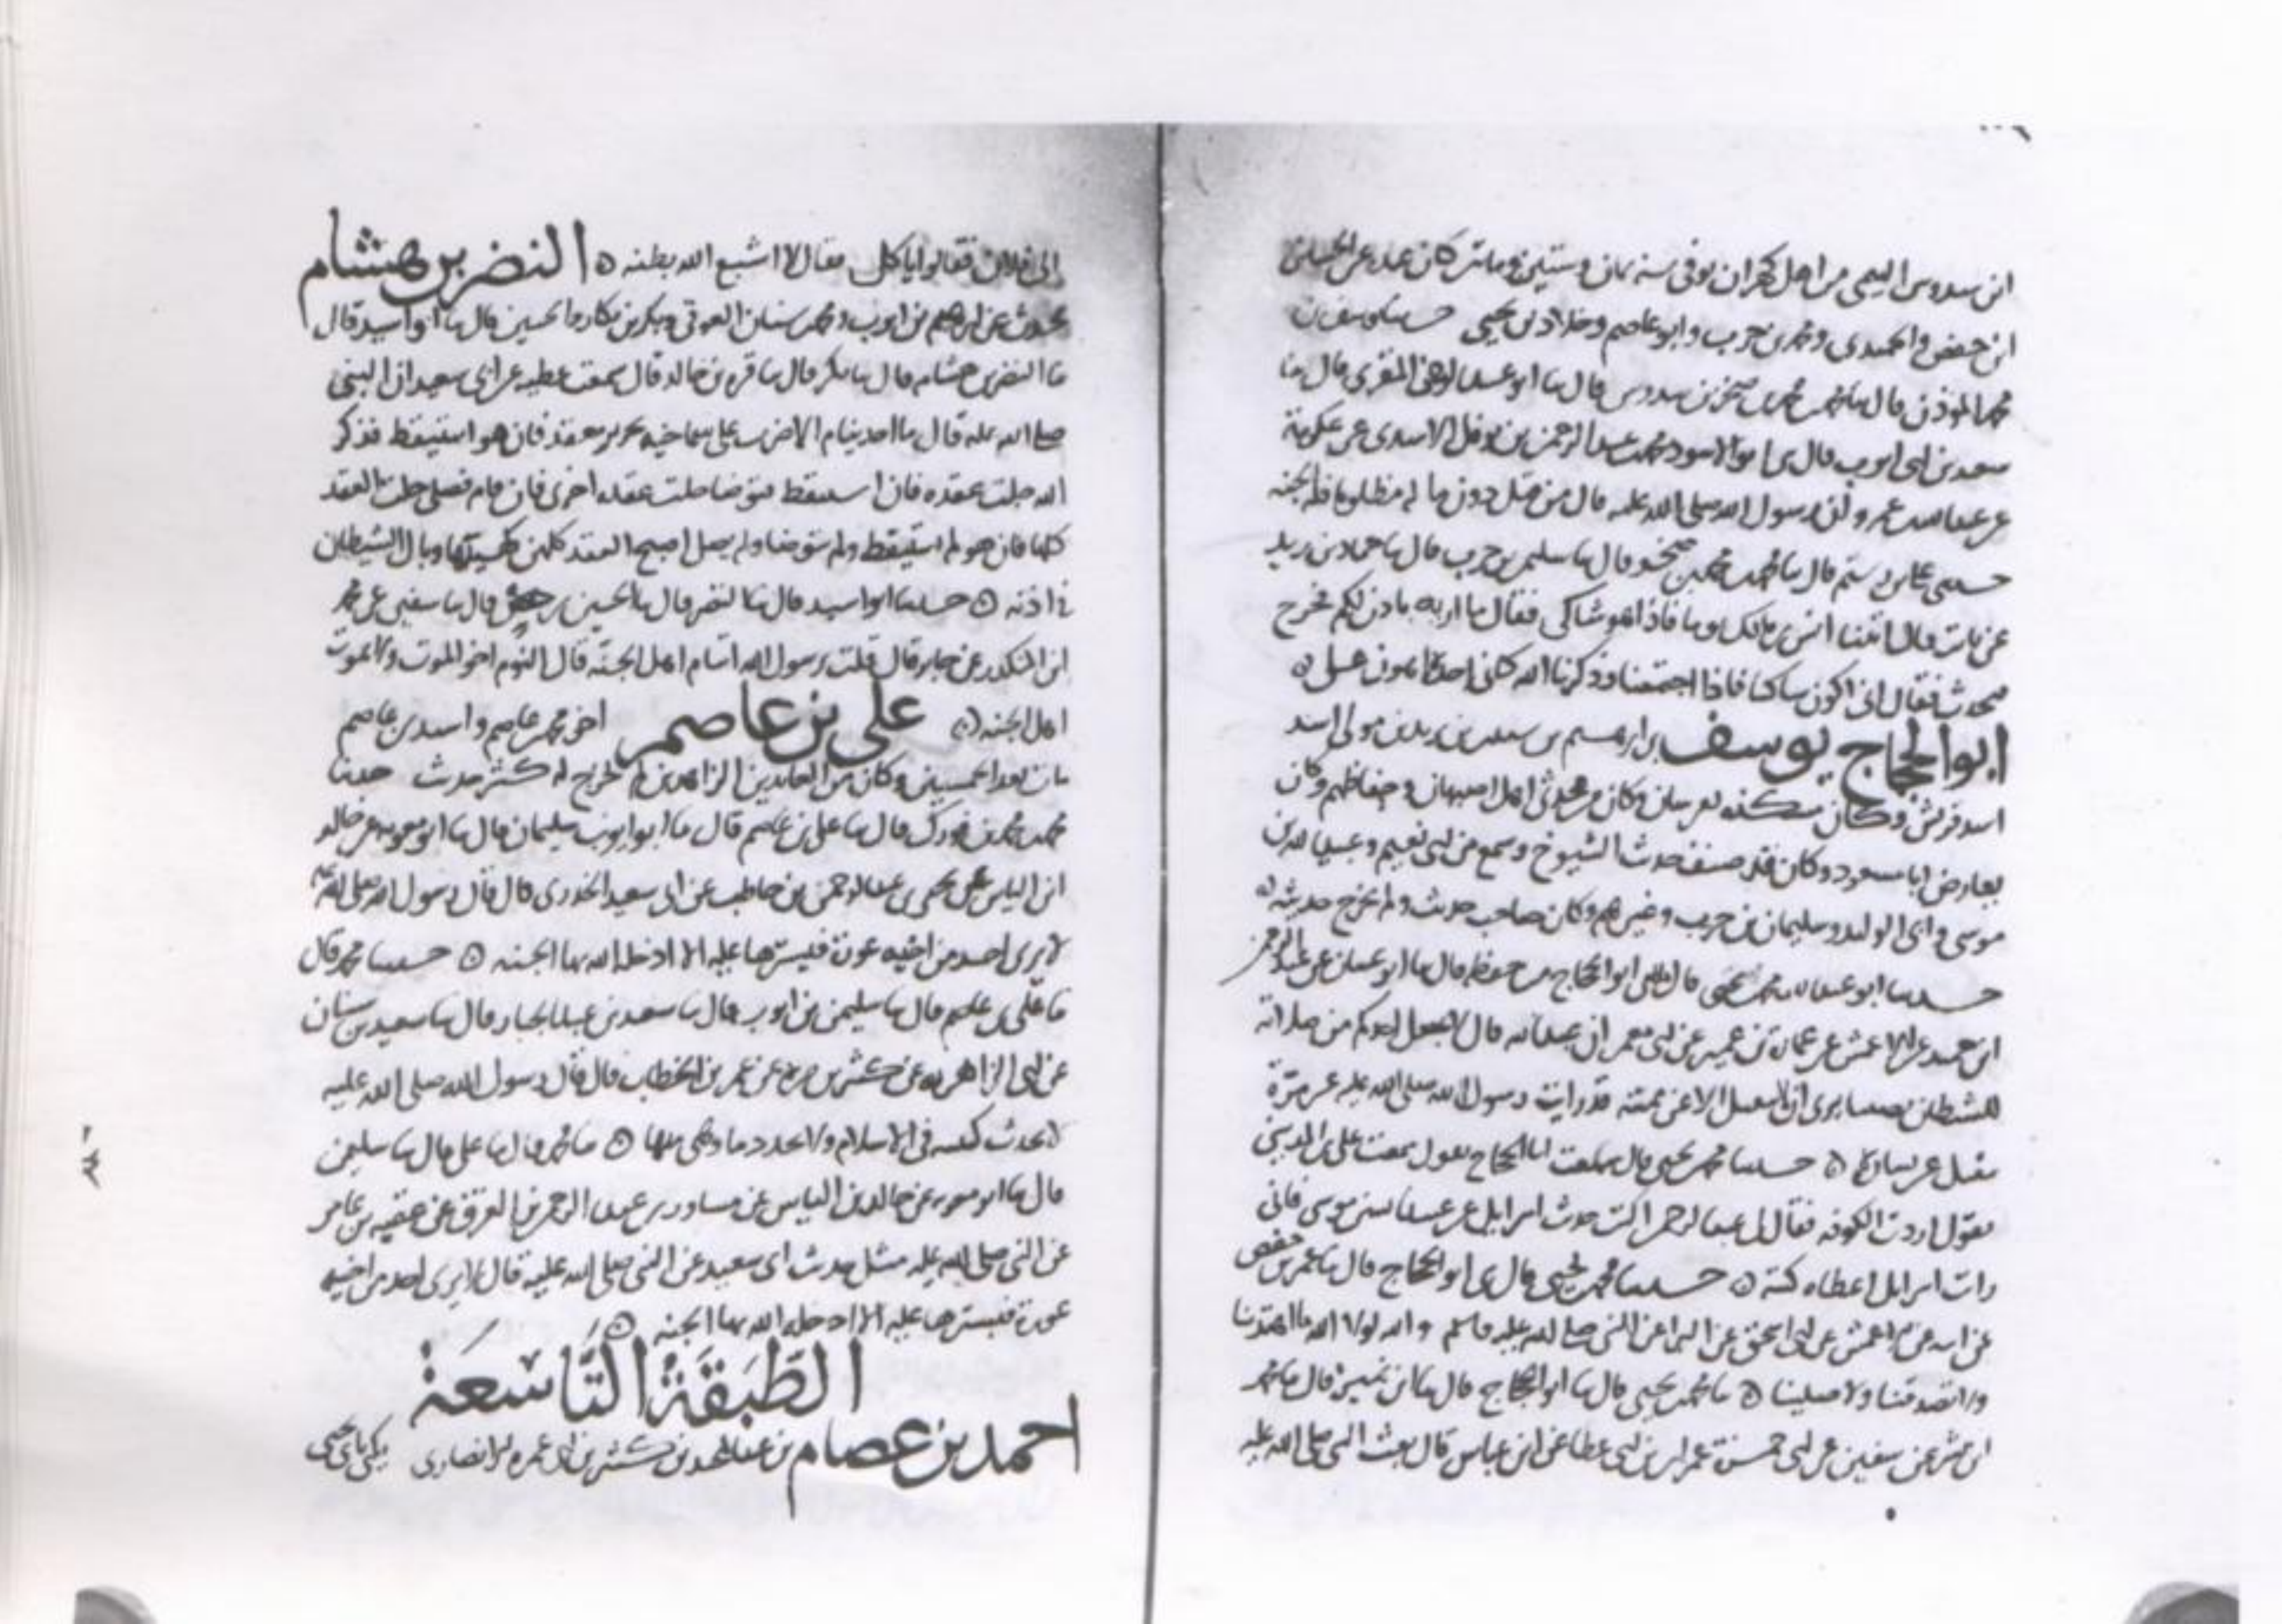 ابن سدوس التيمي من اهل جحران توفى سنه ثمان وستين ومائتين كان عنده عن الحسين
ابن حفص والحميدى ومحمد بن حرب وابو عاصم وخلاد بن يحيى حدثنا يوسف بن
محمد المؤذن قال ثنا محمد بن صخر بن سدوس قال ثنا ابو عبد الرحمن المقرى قال ثنا
سعيد بن ابى ايوب قال حدثنى ابو الاسود محمد بن عبد الرحمن بن نوفل الاسدى عن عكرمة
عن عبد الله بن عمرو ان رسول الله صلى الله عليه قال من قتل دون ماله مظلوما فله الجنه
قال ثنا محمد بن محمد بن صخر قال ثنا سليمن بن حرب قال ثنا حماد بن زيد
عن ثابت قال اتينا انس بن مالك يوما فاذا هو شاكى فقال ما اريد باذن لكم فخرج
فحدث فقال انى اكون ساكنا فاذا اجتمعنا وذكرنا الله كانى
ابو الحجاج يوسف بن ابرهيم بن سعيد بن مولى اسد
اسد قريش وكان مسكنه وكان من محدثى اهل اصبهان وحفاظهم وكان
يعارض ابا مسعود وكان قد صنف حديث الشيوخ وسمع من ابى نعيم وعبيد الله بن
موسى وابى الوليد وسليمان بن حرب وغيرهم وكان صاحب حديث ولم يخرج حديثه ه
حدثنا ابو عبد الله محمد بن يحيى قال املى ابو الحجاج من حفظه قال ثنا ابو غسان عن عبد الرحمن
ابن حميد عن الاعمش عن عمارة بن عمير عن ابى معمر ان عبد الله قال لا يجعل احدكم من صلاته
للشيطان نصيبا يرى ان لا ينفتل الا عن يمينه قد رايت رسول الله صلى الله عليه غير مرة
ينفتل عن يساره ه حدثنا محمد بن يحيى قال سمعت ابا الحجاج يقول سمعت على بن المدينى
يقول اردت الكوفه فقال لى عبد الرحمن اكتب حديث اسرايل عن عبيد الله بن موسى فانى
رايت اسرايل اعطاه كتبه ه حدثنا محمد بن يحيى قال حدثنى ابو الحجاج قال ثنا عمر بن حفص
عن ابيه عن الاعمش عن ابى اسحق عن البرا عن النبى صلى الله عليه وسلم والله لولا الله ما اهتدينا
ولا تصدقنا ولا صلينا ه ثنا محمد بن يحيى قال ثنا ابو الحجاج قال ثنا ابن نمير قال ثنا محمد
ابن بشر عن سفين عن ابى عمران بن ابى عطا عن ابن عباس قال بعث النبى صلى الله عليه
الى فلان فقالوا ياكل فقال لا اشبع الله بطنه ه النضر بن هشام
يحدث عن ابرهيم بن ايوب ومحمد بن سنان العوقى وبكر بن بكار والحسين قال ثنا ابو اسيد قال
ثنا النضر بن هشام قال ثنا بكر قال ثنا قرة بن خالد قال سمعت عطيه عن ابى سعيد ان النبى
صلى الله عليه قال ما احد ينام الا ضرب على سماخيه بجرير معقد فان هو استيقظ فذكر
الله حلت عقده فان استيقظ فتوضا حلت عقده اخرى فان قام فصلى حلت العقد
كلها فان هو لم استيقظ ولم يتوضا ولم يصل اصبح العقد كلهن كهيئتها وبال الشيطان
فى اذنه ه حدثنا ابو اسيد قال ثنا النضر قال ثنا الحسين بن حفص قال ثنا سفين عن محمد
ابن المنكدر عن جابر قال قلت يرسول الله اينام اهل الجنة قال النوم اخو الموت ولا يموت
اهل الجنه ه على بن عاصم اخو محمد بن عاصم واسيد بن عاصم
مات بعد الخمسين وكان من العابدين الزاهدين لم يخرج له كثير حديث حدثنا
محمد بن محمد بن فورك قال ثنا على بن عاصم قال ثنا ابو ايوب سليمان قال ثنا ابو معويه عن خالد
ابن الياس عن يحيى بن عبد الرحمن بن حاطب عن ابى سعيد الخدرى قال قال رسول الله صلى الله عليه
لا يرى احد من اخيه عورة فيسترها عليه الا ادخله الله بها الجنه ه حدثنا محمد قال
ثنا على بن عاصم قال ثنا سليمن بن ايوب قال ثنا سعيد بن عبد الجبار قال ثنا سعيد بن سنان
عن ابى الزاهريه عن كثير بن مرة عن عمر بن الخطاب قال قال رسول الله صلى الله عليه
لا تحدث كنيسه فى الاسلام ولا يجدد ما وهى منها ه ثنا محمد قال ثنا على قال ثنا سليمن
قال ثنا ابو معويه عن خالد بن الياس عن مساور بن عبد الرحمن بن العرق عن عقبه بن عامر
عن النبى صلى الله عليه مثل حديث ابى سعيد عن النبى صلى الله عليه قال لا يرى احد من اخيه
عورة فيسترها عليه الا ادخله الله بها الجنه ه
الطَّبَقَةُ التَّاسِعَةُ
احمد بن عصام بن عبد المجيد بن كثير بن ابى عمره الانصارى يكنى بابى يحيى